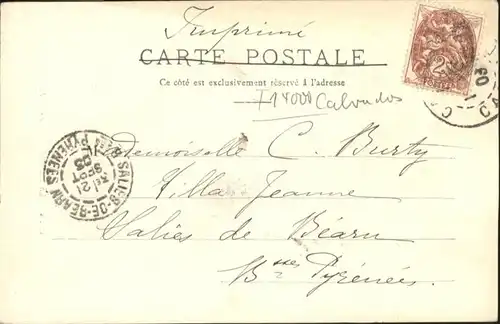 Imprimé
CARTE POSTALE
Ce côté est exclusivement réservé à l'adresse
14000 Calvados
Mademoiselle C. Burty
Villa Jeanne
Salies de Béarn
Bses Pyrénées.
SALIES-DE-BÉARN
PYRÉNÉES
21
SEPT
03